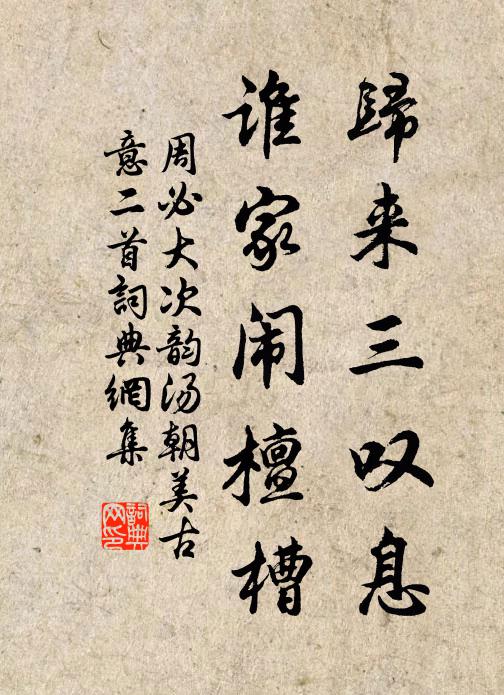 歸来三叹息
谁家闹檀槽
周必大次韵汤朝美古
意二首詞典網集
詞典網印